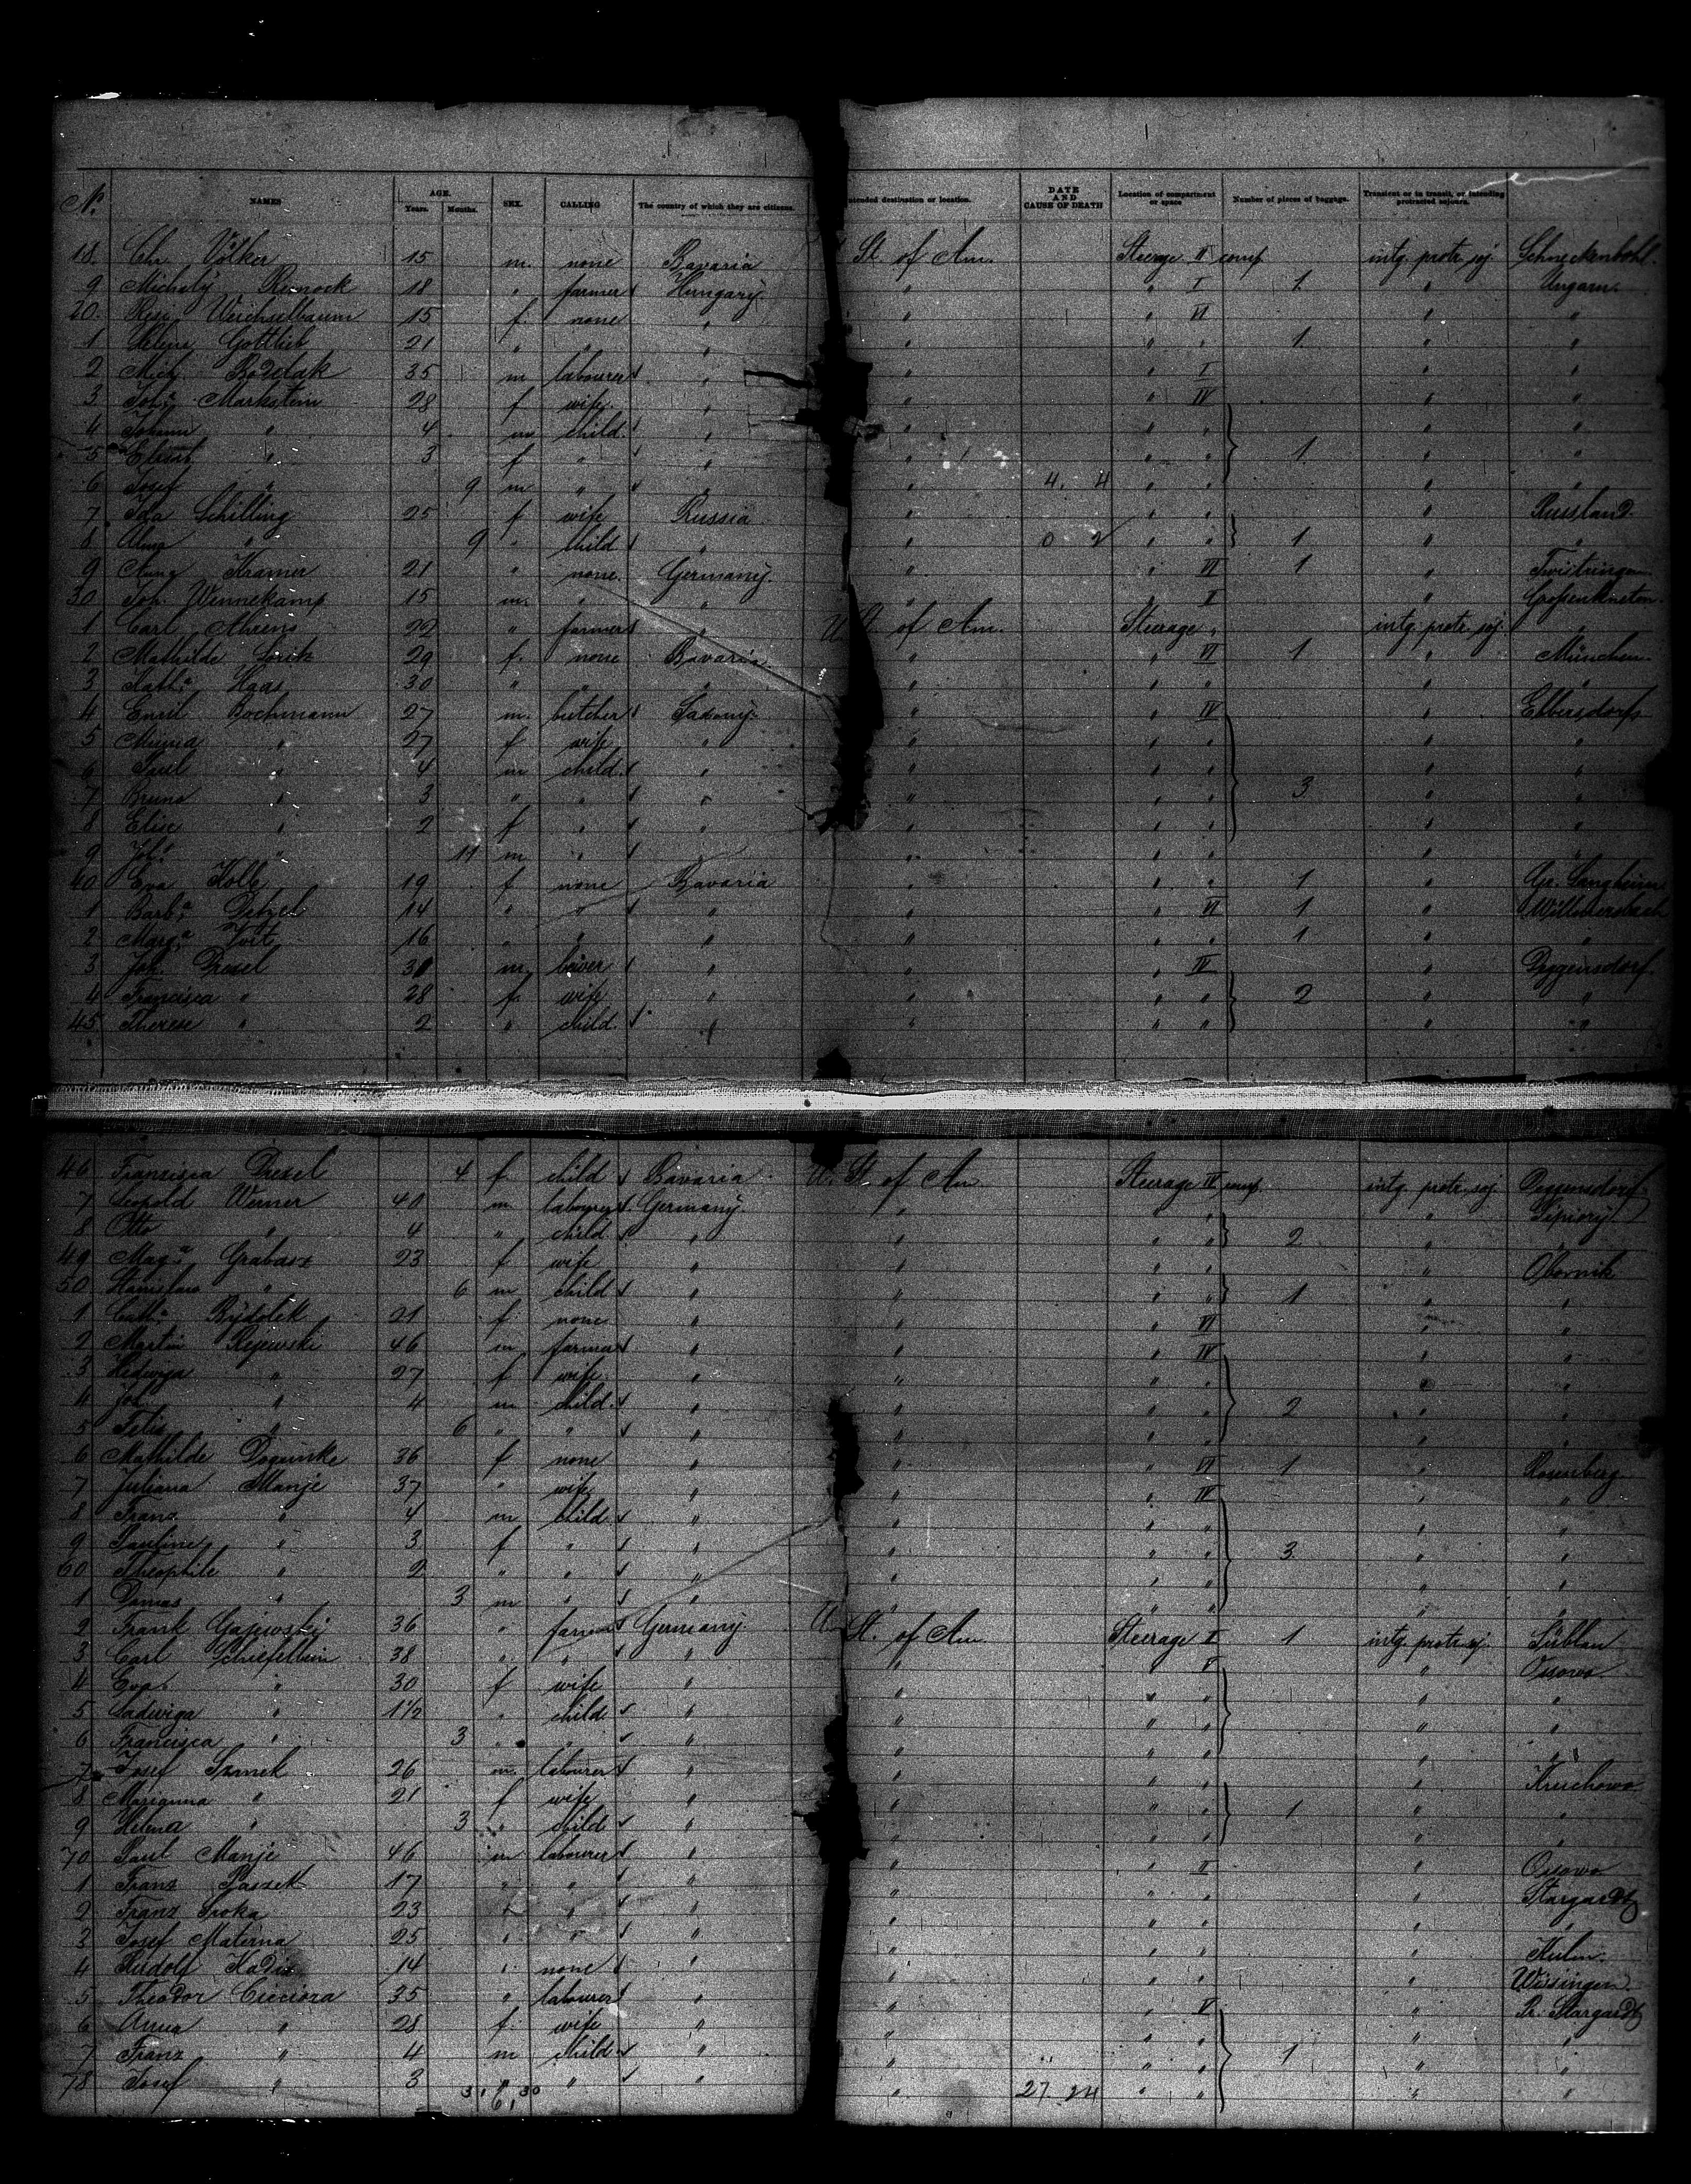 No. NAMES AGE. Years. Months. SEX. CALLING The country of which they are citizens. Intended destination or location. DATE AND CAUSE OF DEATH Location of compartment or space Number of pieces of baggage. Transient or in transit, or intending protracted sojourn.
18. Chr. Völker 15 m. none Bavaria St. of Am. Steerage II comp intg. protr. soj. Schneckenbohl.
9 18 " farmer Hungary " " I 1 " Ungarn.
20. Resi Weichselbaum 15 f. none " " " VI " "
1 Helene Gottlieb 21 " " " " " " 1 " "
2 Mich. 35 m labourer " " " I " "
3 Johª Markstein 28 f wife " " " IV " "
4 Johann " 4 m child " " " " " "
5 " 3 f " " " " " 1 " "
6 Josef " 9 m " " " 4. 4 " " " "
7 Ida Schilling 25 f wife Russia " " " " Russland.
8 Alma " 9 " child " " 0 2 " " 1 " "
9 Anna Kramer 21 " none. Germany. " " VI 1 " Twistringen
30 Joh. Wennekamp 15 m. " " " " I "
1 Carl Ahrens 22 " farmer " U St. of Am. Steerage " intg. protr. soj. "
2 Mathilde 29 f. none Bavaria " " VI 1 " München.
3 Kathª Haas 30 " " " " " " " "
4 Emil Bochmann 27 m. butcher Saxony " " IV " Ebbersdorf
5 Minna " 27 f wife " " " " " "
6 Paul " 4 m child " " " " " "
7 Bruno " 3 " " " " " " 3 " "
8 Elise " 2 f " " " " " " "
9 Joh. " 11 m " " " " "
40 Eva Kolb 19 f none Bavaria " " " 1 " Gr. Langheim
1 Barbª 14 " " " " " VI 1 "
2 Margª Voit 16 " " " " " " 1 " "
3 Joh. Dresel 31 m. " " " IV " Deggensdorf.
4 Francisca " 28 f. wife " " " " 2 " "
45 Therese " 2 " child. " " " " " "
46 Francisca Dresel 4 f child Bavaria U. St. of Am Steerage IV comp. intg. protr. soj. Deggensdorf
7 Leopold Werner 40 m labourer Germany. " " " "
8 Otto " 4 " child " " " " 2 " "
49 Magª Grabarz 23 f wife " " " " " Obornik
50 Stanislaus " 6 m child " " " " 1 " "
1 Cathª 21 f. none " " " VI " "
2 Martin Rejewski 46 m farmer " " " IV " "
3 Hedwiga " 27 f wife " " " " " "
4 Joh. " 4 m child " " " " 2 " "
5 Felix " 6 " " " " " " " "
6 Mathilde 36 f none " " " VI 1 " Rosenberg
7 Juliana Manje 37 " wife " " " IV " "
8 Franz " 4 m child " " " " " "
9 Pauline " 3 f " " " " " 3 " "
60 Theophile " 2 " " " " " " " "
1 " 3 m " " " " " " "
2 Frank Gajewski 36 " farmer Germany. U. St. of Am. Steerage I 1 intg. protr. soj.
3 Carl Schiefelbein 38 " " " " " V " Ossowo
4 Eva " 30 f wife " " " " "
5 Hadwiga " 1½ " child " " " " " "
6 Francisca " 3 " " " " " " " "
7 Josef 26 m. labourer " " " " " Kruchowo
8 Marianna " 21 f wife " " " " 1 " "
9 Helena " 3 " child " " " " " "
70 Paul Manje 46 m labourer " " " II " Ossowo
1 Franz 17 " " " " " " " Stargardt
2 Franz Sroka 23 " " " " " " " "
3 Josef Materna 25 " " " " " " " Kulm.
4 Rudolf 14 " none " " " " "
5 Theodor Cieciora 35 " labourer " " " V " Pr. Stargardt
6 Anna " 28 f. wife " " " " " "
7 Franz " 4 m child " " " " 1 " "
78 Josef " 3 " " " " 27 24 " " " "
31 30
61